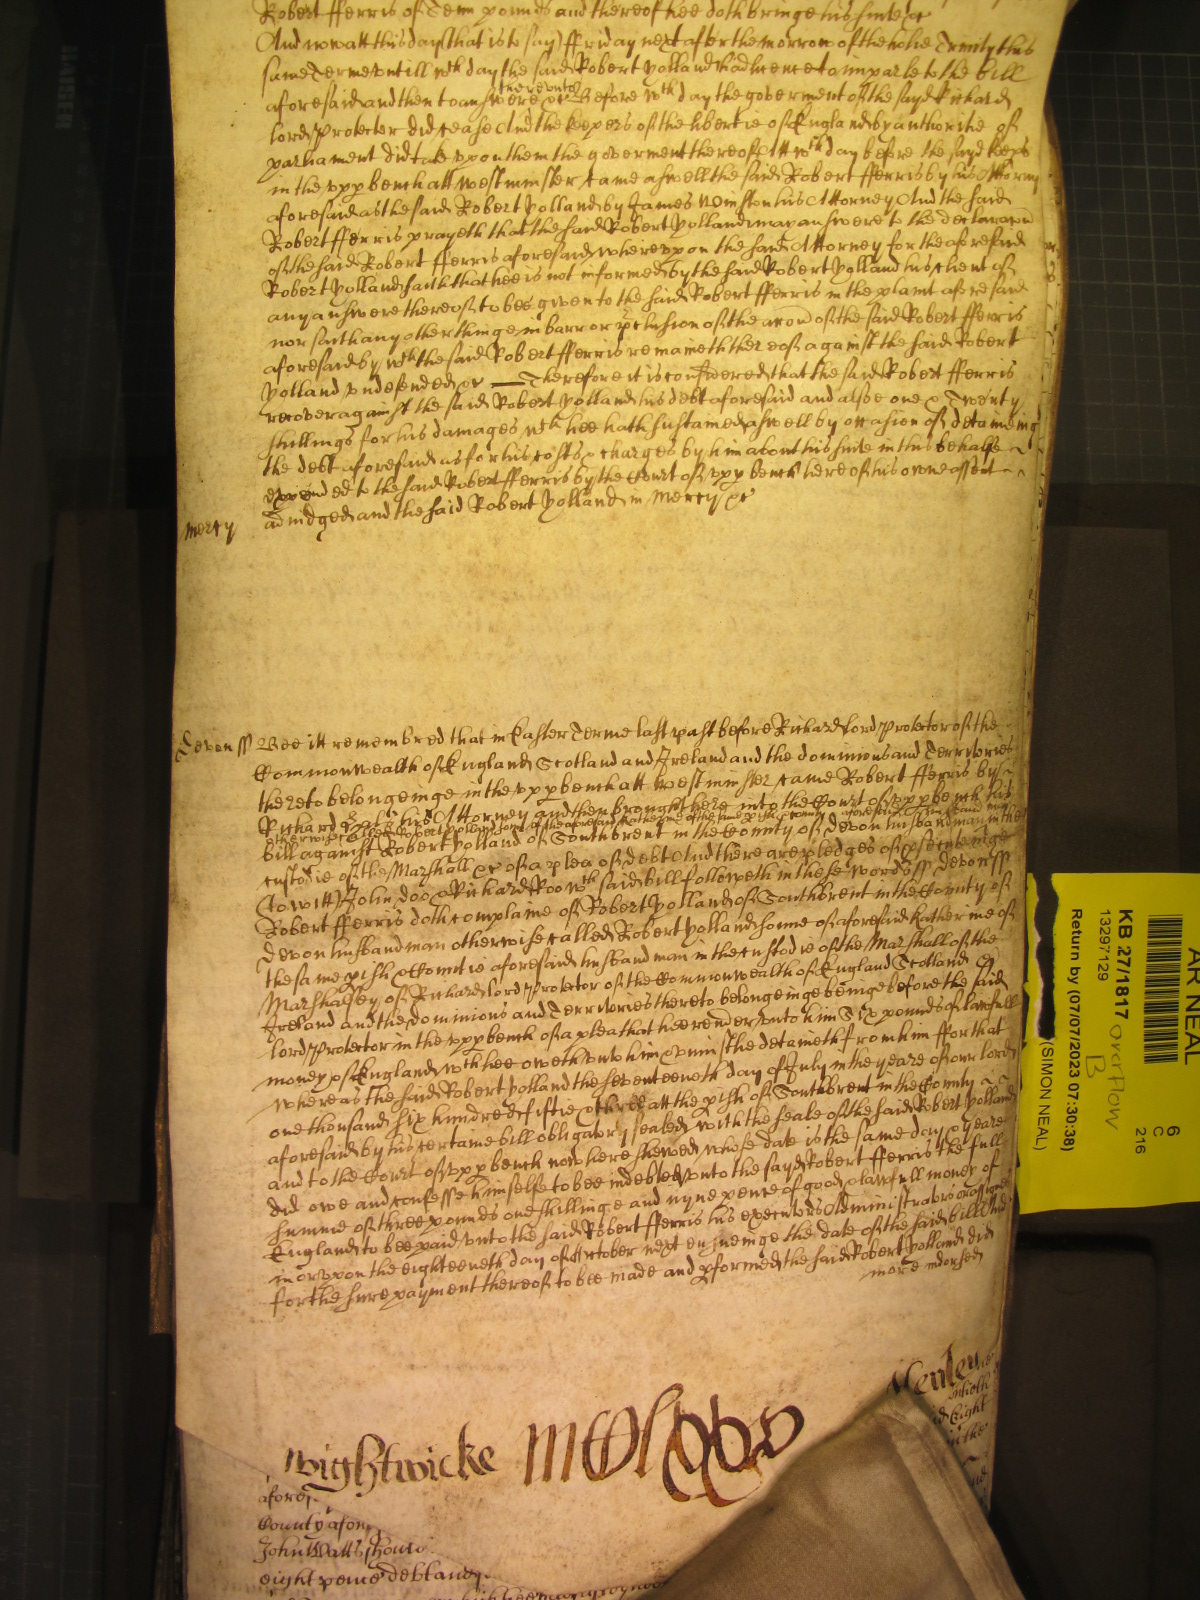 Robert fferris of Tenn pounds and thereof hee doth bringe his suite &c
And now att this day (that is to say) ffriday next after the morrow of the holie Trinity this
same Terme untill wch day the said Robert Yolland had licence to imparle to the bill
aforesaid and then to answere &c Before wch day the goverment of the sayd Richard
thereunto
lord Protector did cease And the keepers of the libertie of England by authoritie of
parliament did take upon them the goverment thereof Att wch day before the sayd keeps
in the upp bench att Westminster came aswell the said Robert fferris by his Attorny
aforesaid as the said Robert Yolland by James Winston his Attorney And the said
Robert fferris prayeth that the said Robert Yolland may answere to the declaracon
of the said Robert fferris aforesaid whereupon the said Attorney for the aforesaid
Robert Yolland saith that hee is not informed by the said Robert Yolland his client of
any answere thereof to bee given to the said Robert fferris in the plaint aforesaid
nor saith any other thinge in barr or pclusion of the accon of the said Robert fferris
aforesaid by wch the said Robert fferris remaineth thereof against the said Robert
Yolland undefended &c — Therefore it is considered that the said Robert fferris
recover against the said Robert Yolland his debt aforesaid and alsoe one & Twenty
shillings for his damages wch hee hath sustained aswell by occasion of detaineing
the debt aforesaid as for his costs & charges by him about his suite in this behalfe
expended to the said Robert fferris by the Court of upp bench here of his owne assent
adiudged and the said Robert Yolland in Mercy &c
Mercy
Devon ss Bee itt remembred that in Easter Terme last past before Richard lord Protector of the
Commonwealth of England Scotland and Ireland and the dominions and Territories
thereto belongeinge in the upp bench att Westminster came Robert fferris by
Richard his Attorney and then brought here into the Court of upp bench his
otherwise called Robert Yolland sonne of the aforesaid Katherine of the same pish & County aforesaid husbandman
bill against Robert Yolland of Southbrent in the County of Devon husbandman in the
custodie of the Marshall &c of a plea of debt And there are pledges of psecuteinge
To witt John Doo & Richard Roo wch said bill followeth in these words ss Devon ss
Robert fferris doth complaine of Robert Yolland of Southbrent in the County of
Devon husbandman otherwise called Robert Yolland sonne of aforesaid Katherine of
the same pish & Countie aforesaid husbandman in the custodie of the Marshall of the
Marshalsey of Richard lord Protector of the Commonwealth of England Scotland &
Ireland and the dominions and Territories thereto belongeinge beinge before the said
lord Protector in the upp bench of a plea that hee render unto him Six pounds of lawfull
money of England wch hee oweth unto him & uniustly detaineth from him ffor that
whereas the said Robert Yolland the seventeeneth day of July in the yeare of our lord
one thousand six hundred fiftie & three att the pish of Southbrent in the County
aforesaid by his certaine bill obligatory sealed with the seale of the said Robert Yolland
and to the Court of upp bench now here shewed whose date is the same day & yeare
did owe and confesse himselfe to bee indebted unto the sayd Robert fferris the full
summe of three pounds one shillinge and nyne pence of good & lawfull money of
England to bee paid unto the said Robert fferris his executors Administrators or assignes
in or upon the eighteeneth day of October next ensueinge the date of the said bill And
for the sure payment thereof to bee made and pformed the said Robert Yolland did
more indorsed
Wightwicke
Henley
aforesd
County afore
John Watts shoul
eight pence debt and
AR NEAL
6
C
216
KB 27/1817
13297129
overflow
B
Return by (07/07/2023 07:30:38)
(SIMON NEAL)